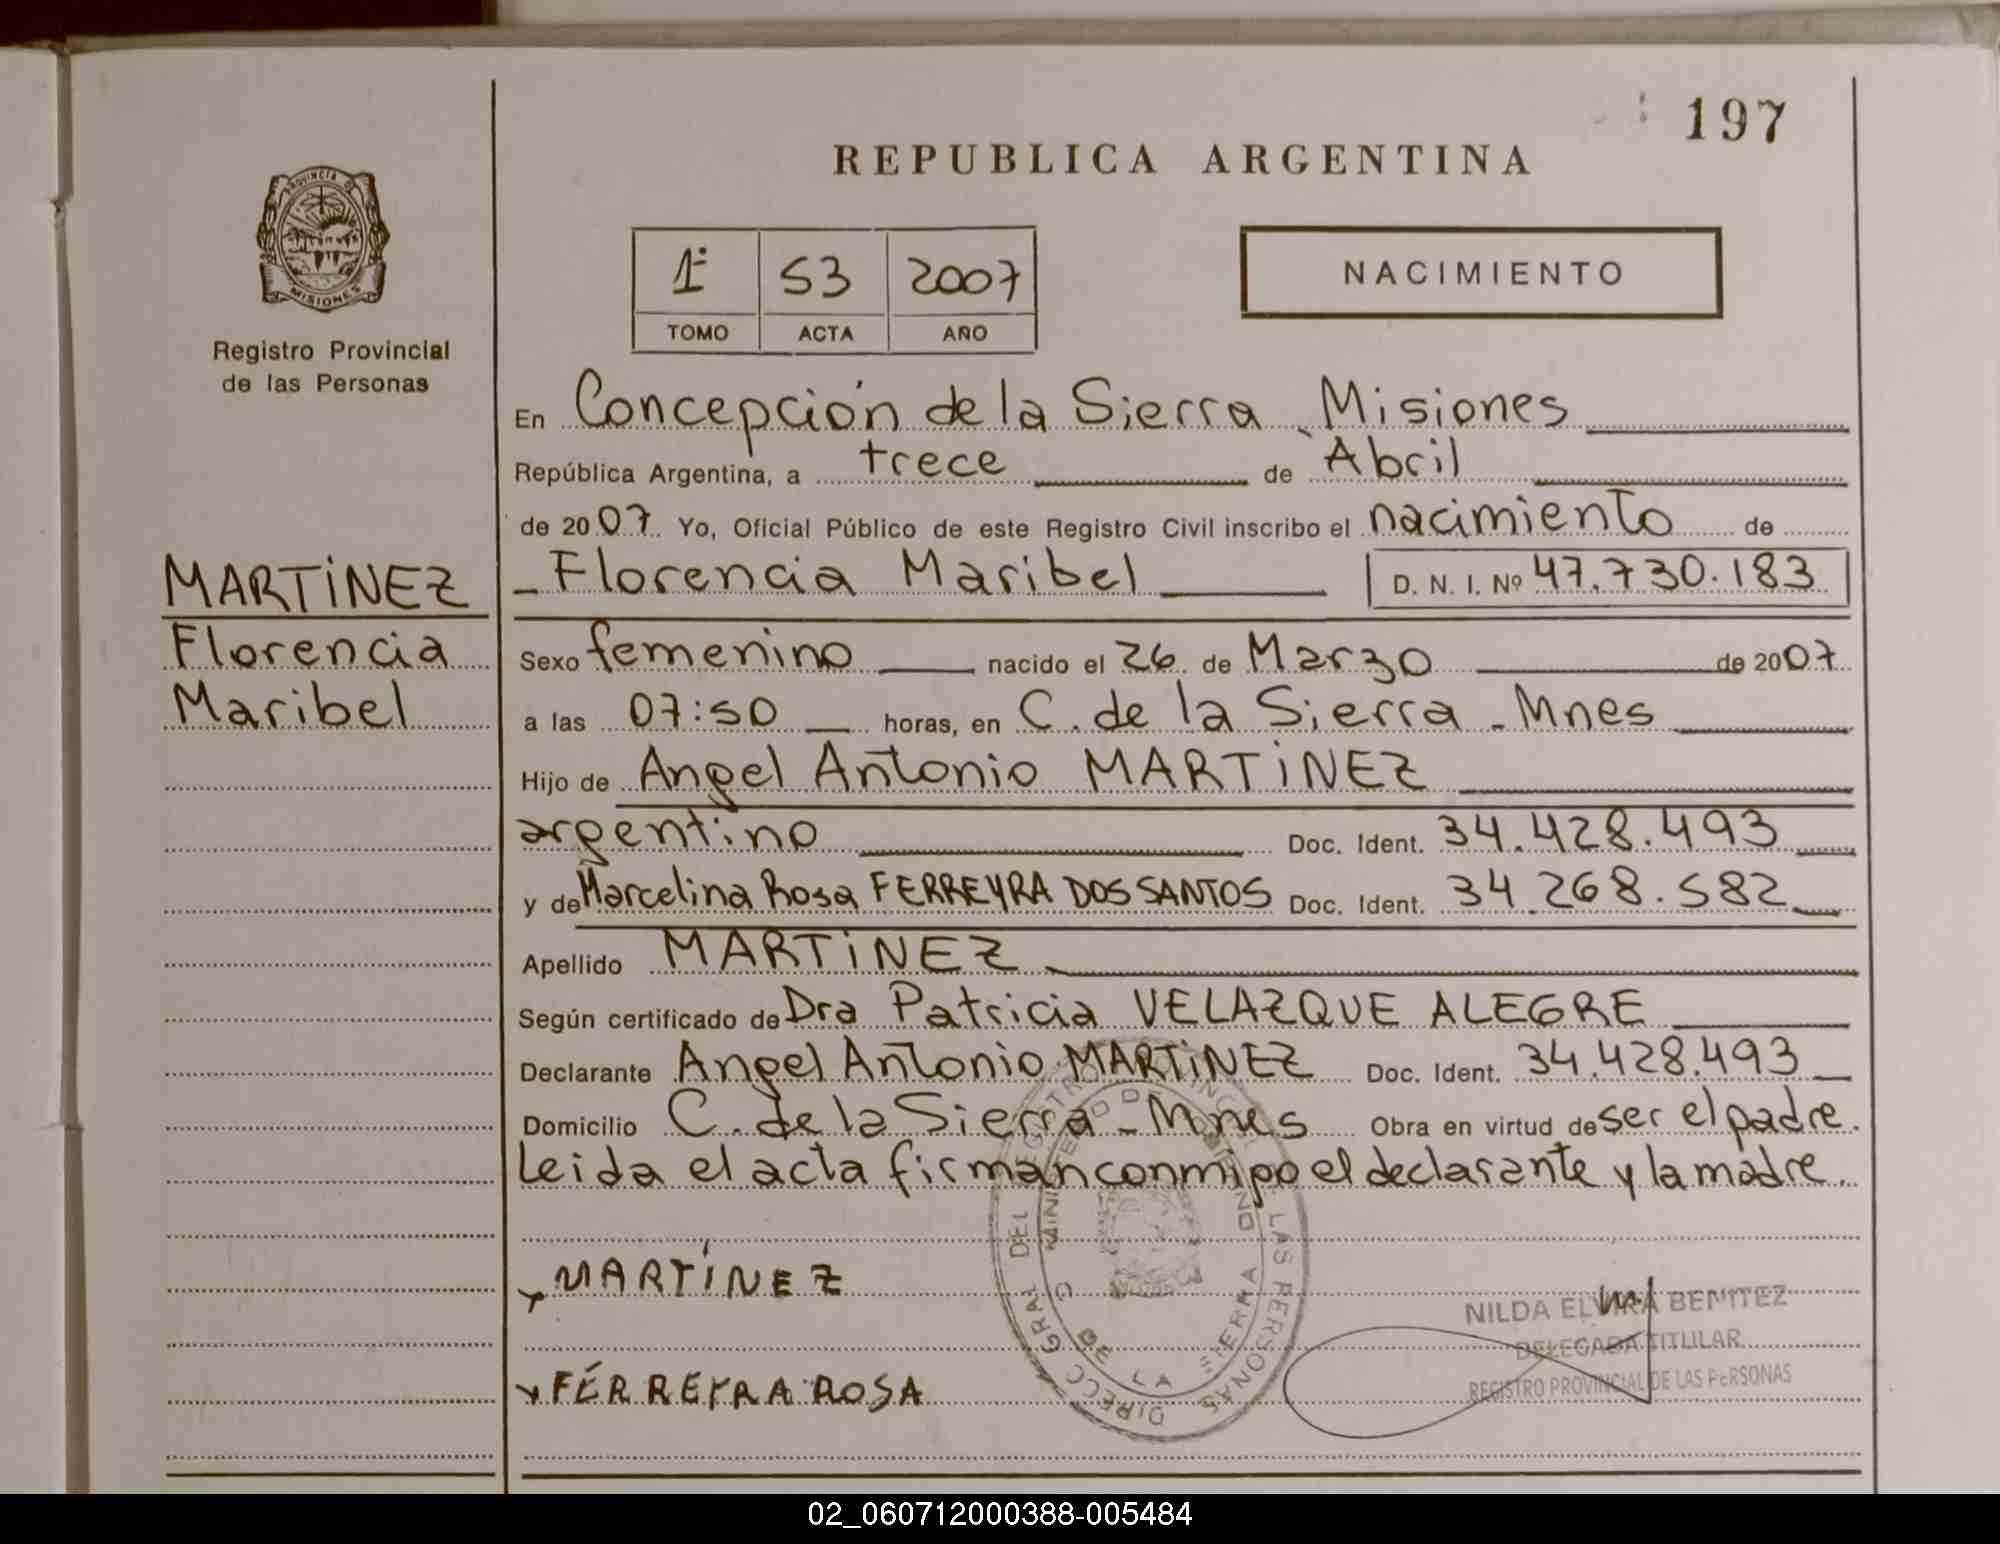 197
REPUBLICA ARGENTINA
PROVINCIA DE
MISIONES
Registro Provincial
de las Personas
1º 53 2007
TOMO ACTA AÑO
NACIMIENTO
En Concepción de la Sierra, Misiones
República Argentina, a trece de Abril
de 2007 Yo, Oficial Público de este Registro Civil inscribo el nacimiento de
Florencia Maribel D. N. I. Nº 47.730.183
MARTINEZ
Florencia
Maribel
Sexo femenino nacido el 26 de Marzo de 2007
a las 07:50 horas, en C. de la Sierra - Mnes
Hijo de Angel Antonio MARTINEZ
argentino Doc. Ident. 34.428.493
y de Marcelina Rosa FERREYRA DOS SANTOS Doc. Ident. 34.268.582
Apellido MARTINEZ
Según certificado de Dra Patricia VELAZQUE ALEGRE
Declarante Angel Antonio MARTINEZ Doc. Ident. 34.428.493
Domicilio C. de la Sierra - Mnes Obra en virtud de ser el padre.
Leida el acta firman conmigo el declarante y la madre.
MARTÍNEZ
FERREYRA ROSA
DIRECC GRAL DEL REGISTRO PROVINCIAL DE LAS PERSONAS
MINISTERIO DE GOBIERNO
DE LA SIERRA
NILDA ELVIRA BENITEZ
DELEGADA TITULAR
REGISTRO PROVINCIAL DE LAS PERSONAS
02_060712000388-005484